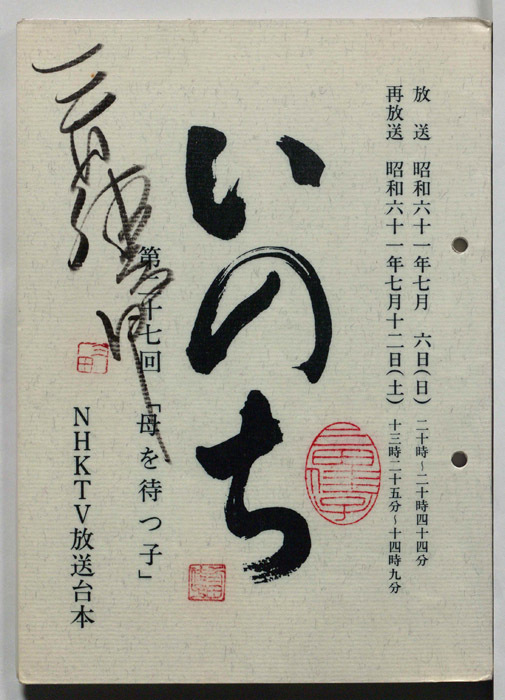 放送 昭和六十一年七月 六日（日） 二十時～二十時四十四分
再放送 昭和六十一年七月十二日（土） 十三時二十五分～十四時九分
いのち
第二十七回 「母を待つ子」
NHKTV放送台本
三田